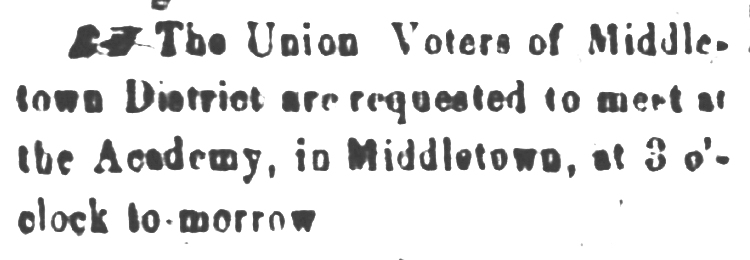 The Union Voters of Middle-
town District are requested to meet at
the Academy, in Middletown, at 3 o'-
clock to-morrow